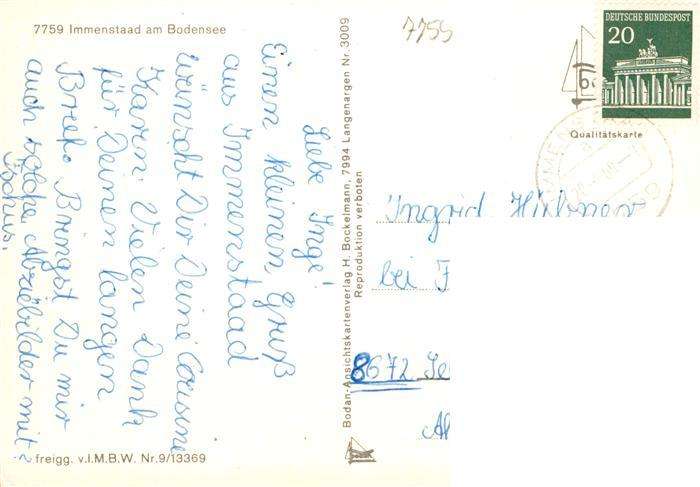 7759 Immenstaad am Bodensee
7755
DEUTSCHE BUNDESPOST
20
Qualitätskarte
Liebe Inge!
Einen kleinen Gruß
aus Immenstaad
wünscht Dir Deine Cousine
Karin. Vielen Dank
für Deinen langen
Brief. Bringst Du mir
auch solche Abziebilder mit?
Tschüs.
Bodan-Ansichtskartenverlag H. Bockelmann, 7994 Langenargen Nr. 3009
Reproduktion verboten
Ingrid Hübner
bei F
8672 Se
freigg. v.I.M.B.W. Nr.9/13369